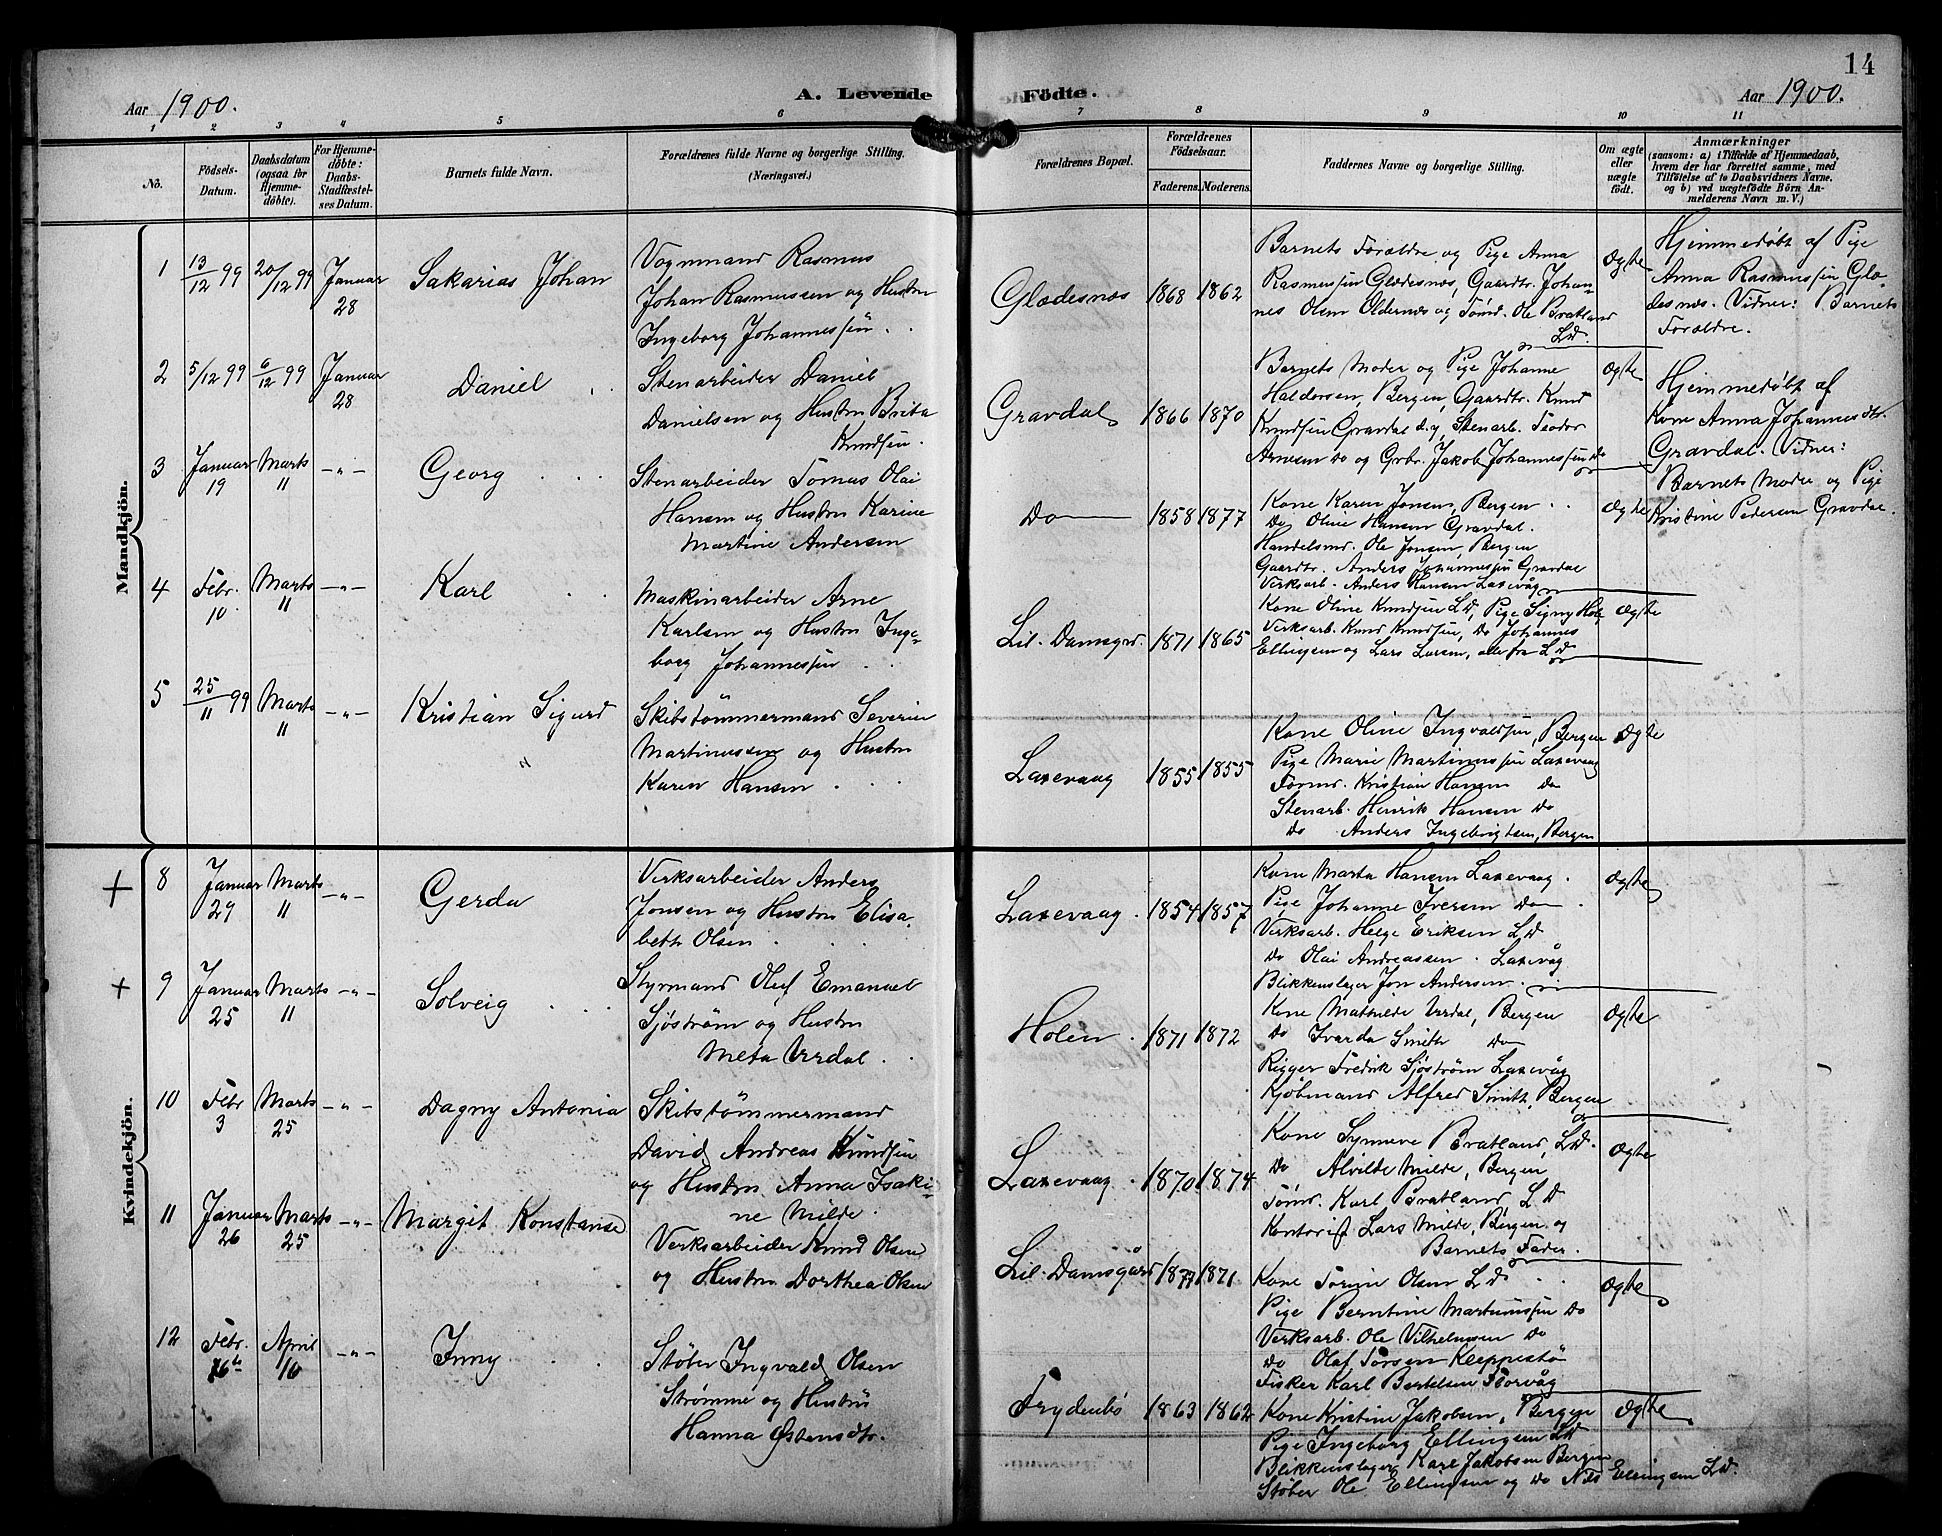 14
Aar 1900.
A. Levende Fødte.
Aar 1900.
1 2 3 4 5 6 7 8 9 10 11
No.
Fødsels-
Datum.
Daabsdatum
(ogsaa for
Hjemme-
døbte).
For Hjemme-
døbte:
Daabs-
Stadfæstel-
ses Datum.
Barnets fulde Navn.
Forældrenes fulde Navne og borgerlige Stilling.
(Næringsvei.)
Forældrenes Bopæl.
Forældrenes
Fødselsaar.
Faderens. Moderens.
Faddernes Navne og borgerlige Stilling.
Om ægte
eller
uægte
født.
Anmærkninger
(saasom: a) i Tilfælde af Hjemmedaab,
hvem der har forrettet samme, med
Tilføielse af to Daabsvidners Navne,
og b) ved uægtefødte Børn An-
melderens Navn m. V.)
Mandkjön.
1 13/12 99 20/12 99 Januar 28
Sakarias Johan
Vognmand Rasmus
Johan Rasmussen og Hustru
Ingeborg Johannessen
Glædesnæs 1868 1862
Barnets Forældre og Pige Anna
Rasmussen Glædesnæs, Gaardbr. Johan-
nes Olsen Oldernæs og Tømd. Ole Bratland
LD.
Ægte
Hjemmedøbt af Pige
Anna Rasmussen Glæ-
desnæs. Vidner: Barnets
Forældre.
2 5/12 99 6/12 99 Januar 28
Daniel
Stenarbeider Daniel
Danielsen og Hustru Brita
Knudsen.
Gravdal 1866 1870
Barnets Moder og Pige Johanne
Haldorsen, Bergen, Gaardbr. Knud
Knudsen Gravdal og Stenarb. Teodor
Arnesen Do og Grbr. Jakob Johannessen Do
Ægte
Hjemmedøbt af
Kone Anna Johannesdtr.
Gravdal. Vidner:
Barnets Moder og Pige
Kristine Pedersen Gravdal.
3 Januar 19 Marts 11 - " -
Georg
Stenarbeider Tomas Olai
Hansen og Hustru Karine
Martine Andersen
Do 1858 1877
Kone Karen Jonsen Bergen
Do Oline Hansen Gravdal.
Handelsmd. Ole Jonsen, Bergen
Gaardbr. Anders Johannessen Gravdal
Verksarb. Anders Hansen Laxevåg
Ægte
4 Febr. 10 Marts 11 - " -
Karl
Maskinarbeider Arne
Karlsen og Hustru Inge-
borg Johannessen
Lil. Damsgrd. 1871 1865
Kone Oline Knudsen LD, Pige Signy
Verksarb. Knud Knudsen, Do Johannes
Ellingsen og Lars Larsen, alle fra LD
Ægte
5 25/11 99 Marts 11 - " -
Kristian Sigurd
Skibstømmermand Severin
Martinussen og Hustru
Karen Hansen
Laxevaag 1855 1855
Kone Oline Ingvaldsen, Bergen
Pige Marie Martinussen Laxevaag
Formd. Kristian Hansen Do
Stenarb. Henrik Hansen Do
Do Anders Ingebrigtsen, Bergen
Ægte
Kvindekjön.
+ 8 Januar 29 Marts 11 - " -
Gerda
Verksarbeider Anders
Jonsen og Hustru Elisa-
beth Olsen
Laxevaag. 1854 1857
Kone Marta Hansen Laxevaag.
Pige Johanne Iversen Do
Verksarb. Helge Eriksen LD
Do Olai Andreassen. Laxevåg
Blikkenslager Jon Andersen.
Ægte
+ 9 Januar 25 Marts 11 - " -
Solveig
Styrmand Oluf Emanuel
Sjøstrøm og Hustru
Meta Urdal.
Holen. 1871 1872
Kone Mathilde Urdal, Bergen
Do Ivarda Smith Do
Rigger Fredrik Sjøstrøm Laxevåg
Kjøbmand Alfred Smith, Bergen
Ægte
10 Febr 3 Marts 25 - " -
Dagny Antonia
Skibstømmermand
David Andreas Knudsen
og Hustru Anna Isaki-
ne Milde.
Laxevaag. 1870 1874
Kone Synneve Bratland, LD.
Do Alvilde Milde, Bergen
Tømd. Karl Bratland LD
Kontorist Lars Milde, Bergen. og
Barnets Fader.
Ægte
11 Januar 26 Marts 25 - " -
Margit Konstanse
Verksarbeider Knud Olsen
og Hustru Dorthea Olsen
Lil. Damsgård 1871
Kone Torine Olsen LD
Pige Berntine Martinussen Do
Verksarb. Ole Vilhelmsen Do
Do Olaf Torsen Kleppestø
Fisker Karl Bertelsen Florvåg
Ægte
12 Febr. April 16 - " -
Jnny
Støber Ingvald Olsen
Strømme og Hustru
Hanna Østensdtr.
Frydenbø 1863 1862
Kone Kristine Jakobsen, Bergen
Pige Ingeborg Ellingsen LD
Blikkenslager Karl Jakobsen Bergen
Støber Ole Ellingsen og Do Nils Ellingsen LD.
Ægte